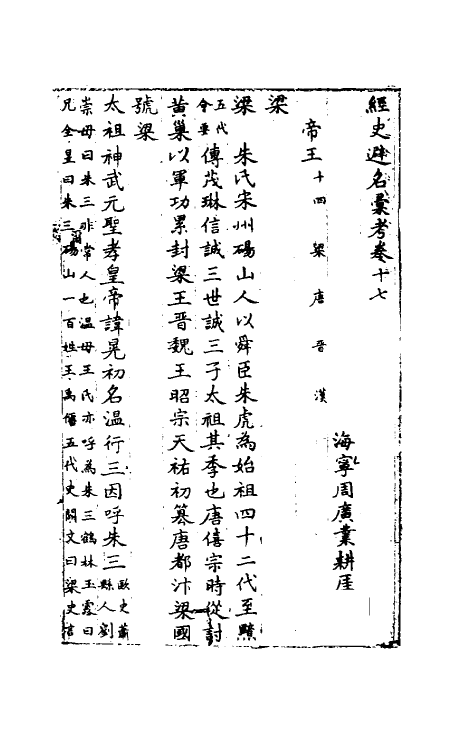 經史避名彙考卷十七
海寧周廣業耕厓
帝王十四 梁 唐 晉 漢
梁
梁 朱氏宋州碭山人以舜臣朱虎為始祖四十二代至黯
五代會要 傳茂琳信誠三世誠三子太祖其季也唐僖宗時從討
黃巢以軍功累封梁王晉魏王昭宗天祐初篡唐都汴梁國
號梁
太祖神武元聖孝皇帝諱晃初名溫行三因呼朱三 歐史蕭縣人劉
崇母曰朱三非常人也溫母王氏亦呼為朱三鶴林玉露曰
兄全昱曰朱三碭山一百姓 王禹偁五代史闕文曰梁史